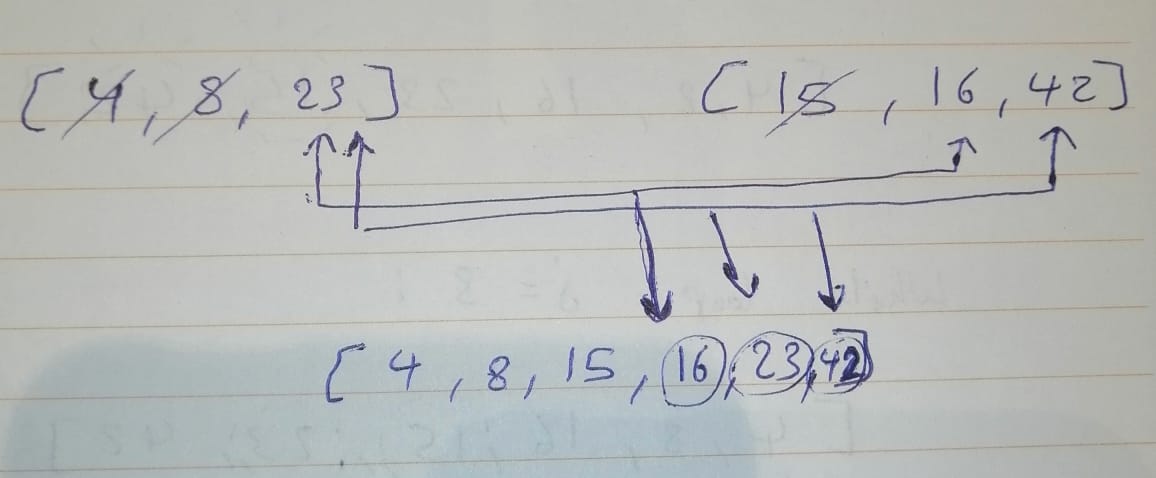 [ 4, 8, 23 ] [ 15 , 16 , 42 ]
[ 4 , 8 , 15 , 16 , 23 , 42 ]